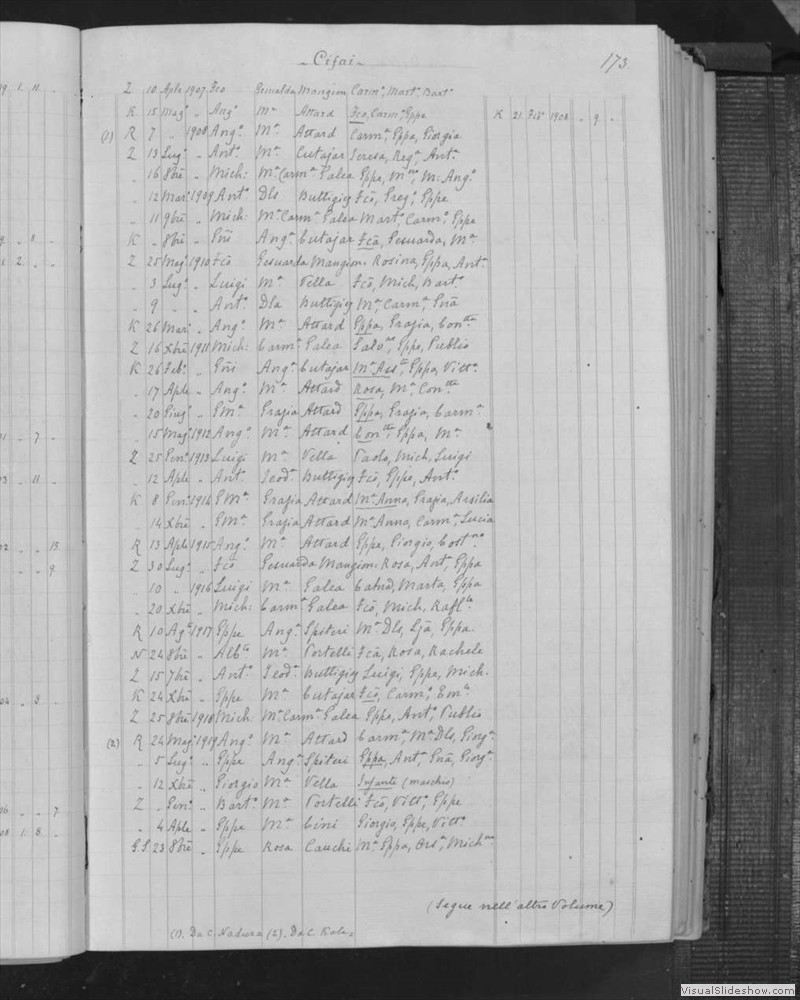 Cifai
173
Z 10 Aple 1907 Fco Gesualda Mangion Carmo, Marta, Barto
K 15 Mago „ Ango Ma Attard Fca, Carmo, Gppe K 21 Feb 1908 „ 9 „
(1) R 7 „ 1908 Ango Ma Attard Carma, Gppa, Giorgia
Z 13 Lugo „ Anto Ma Cutajar Teresa, Rega, Anta
„ 16 8bre „ Mich: Ma Carma Galea Gppe, M: Ango
„ 12 Mar: 1909 Anto Dls Buttigieg Fco, Grego, Gppe
„ 11 9bre „ Mich: Ma Carma Galea Marta, Carmo, Gppe
K „ 8bre „ Gni Anga Cutajar Fca, Gesuarda, Ma
Z 25 Mago 1910 Fco Gesuarda Mangion: Rosina, Gppa, Anta
„ 3 Lugo „ Luigi Ma Vella Fco, Mich, Barto
„ 9 „ „ Anto Dla Buttigieg Ma, Carma, Gna
K 26 Mar: „ Ango Ma Attard Gppa, Grazia, Contta
Z 16 Xbre 1911 Mich: Carma Galea Gppe, Publio
K 26 Febo „ Gni Anga Cutajar Ma Assta, Gppa, Vitta
„ 17 Aple „ Ango Ma Attard Rosa, Ma, Contta
„ 20 Giugo „ GMa Grazia Attard Gppa, Grazia, Carma
„ 15 Mago 1912 Ango Ma Attard Contta, Gppa, Ma
Z 25 Geno 1913 Luigi Ma Vella Paolo, Mich, Luigi
„ 12 Aple „ Anto Teoda Buttigieg Fco, Gppe, Anto
K 8 Geno 1914 GMa Grazia Attard Ma Anna, Grazia, Arsilia
„ 14 Xbre „ GMa Grazia Attard Ma Anna, Carma, Lucia
R 13 Aple 1915 Ango Ma Attard Gppe, Giorgio, Costno
Z 30 Lugo „ Fco Gesuarda Mangion: Rosa, Anta, Gppa
„ 10 „ 1916 Luigi Ma Galea Catnd, Marta, Gppa
„ 20 Xbre „ Mich: Carma Galea Fco, Mich, Rafle
R 10 Ago 1917 Gppe Anga Spiteri Ma Dls, Lja, Gppa
N 24 8bre „ Albto Ma Portelli Fca, Rosa, Rachele
Z 15 7bre „ Anto Teoda Buttigieg Luigi, Gppe, Mich.
K 24 Xbre „ Gppe Ma Cutajar Fco, Carmo, Emle
Z 25 8bre 1918 Mich: Ma Carma Galea Gppe, Anto, Publio
(2) R 24 Mago 1919 Ango Ma Attard Carma, Ma Dls, Giorga
„ 5 Lugo „ Gppe Anga Spiteri Gppa, Anta, Gna, Giorga
„ 12 Xbre „ Giorgio Ma Vella Infante (maschio)
Z „ Geno „ Barto Ma Portelli Fco, Vitto, Gppe
„ 4 Aple „ Gppe Ma Cini Giorgio, Gppe, Vitto
G.S. 23 8bre „ Gppe Rosa Cauchi Ma Gppa, Orsa
(Segue nell'altro Volume)
(1). Da C. Nadura (2). Da C. Kala
VisualSlideshow.com